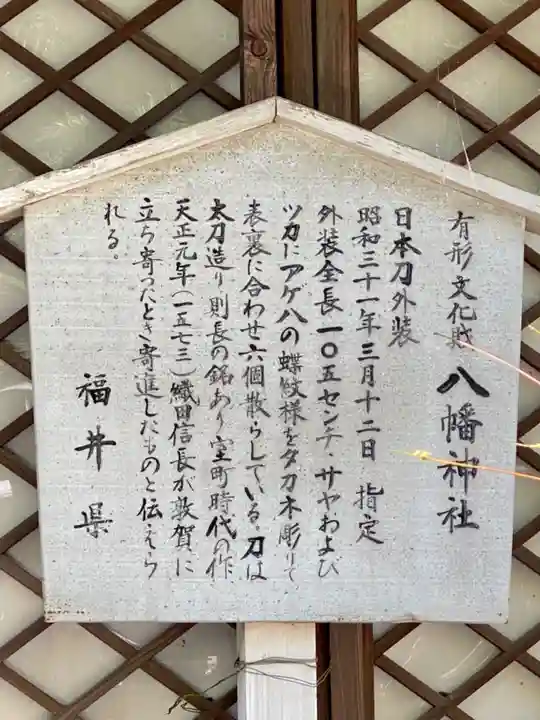 有形文化財 八幡神社
日本刀外装
昭和三十一年三月十二日 指定
外装全長一〇五センチ・サヤおよび
ツカにアゲハの蝶紋様を夕刀木彫りて
表裏に合わせ六個散らしている。刀は
太刀造り則長の銘あり室町時代の作
天正元年(一五七三)織田信長が敦賀に
立ち寄ったとき寄進したものと伝えら
れる。
福井県